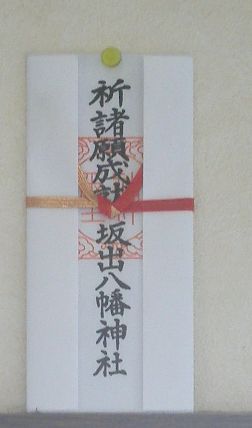 祈諸願成就坂出八幡神社